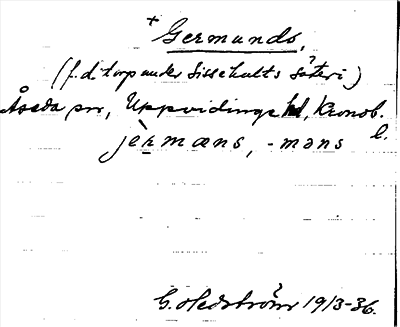 + Germunds,
(f.d. torp under Sissehults säteri)
Åseda sn, Uppvidinge hd, Kronob. l.
jèrmæns, -məns
G. Hedström 19/3-36.